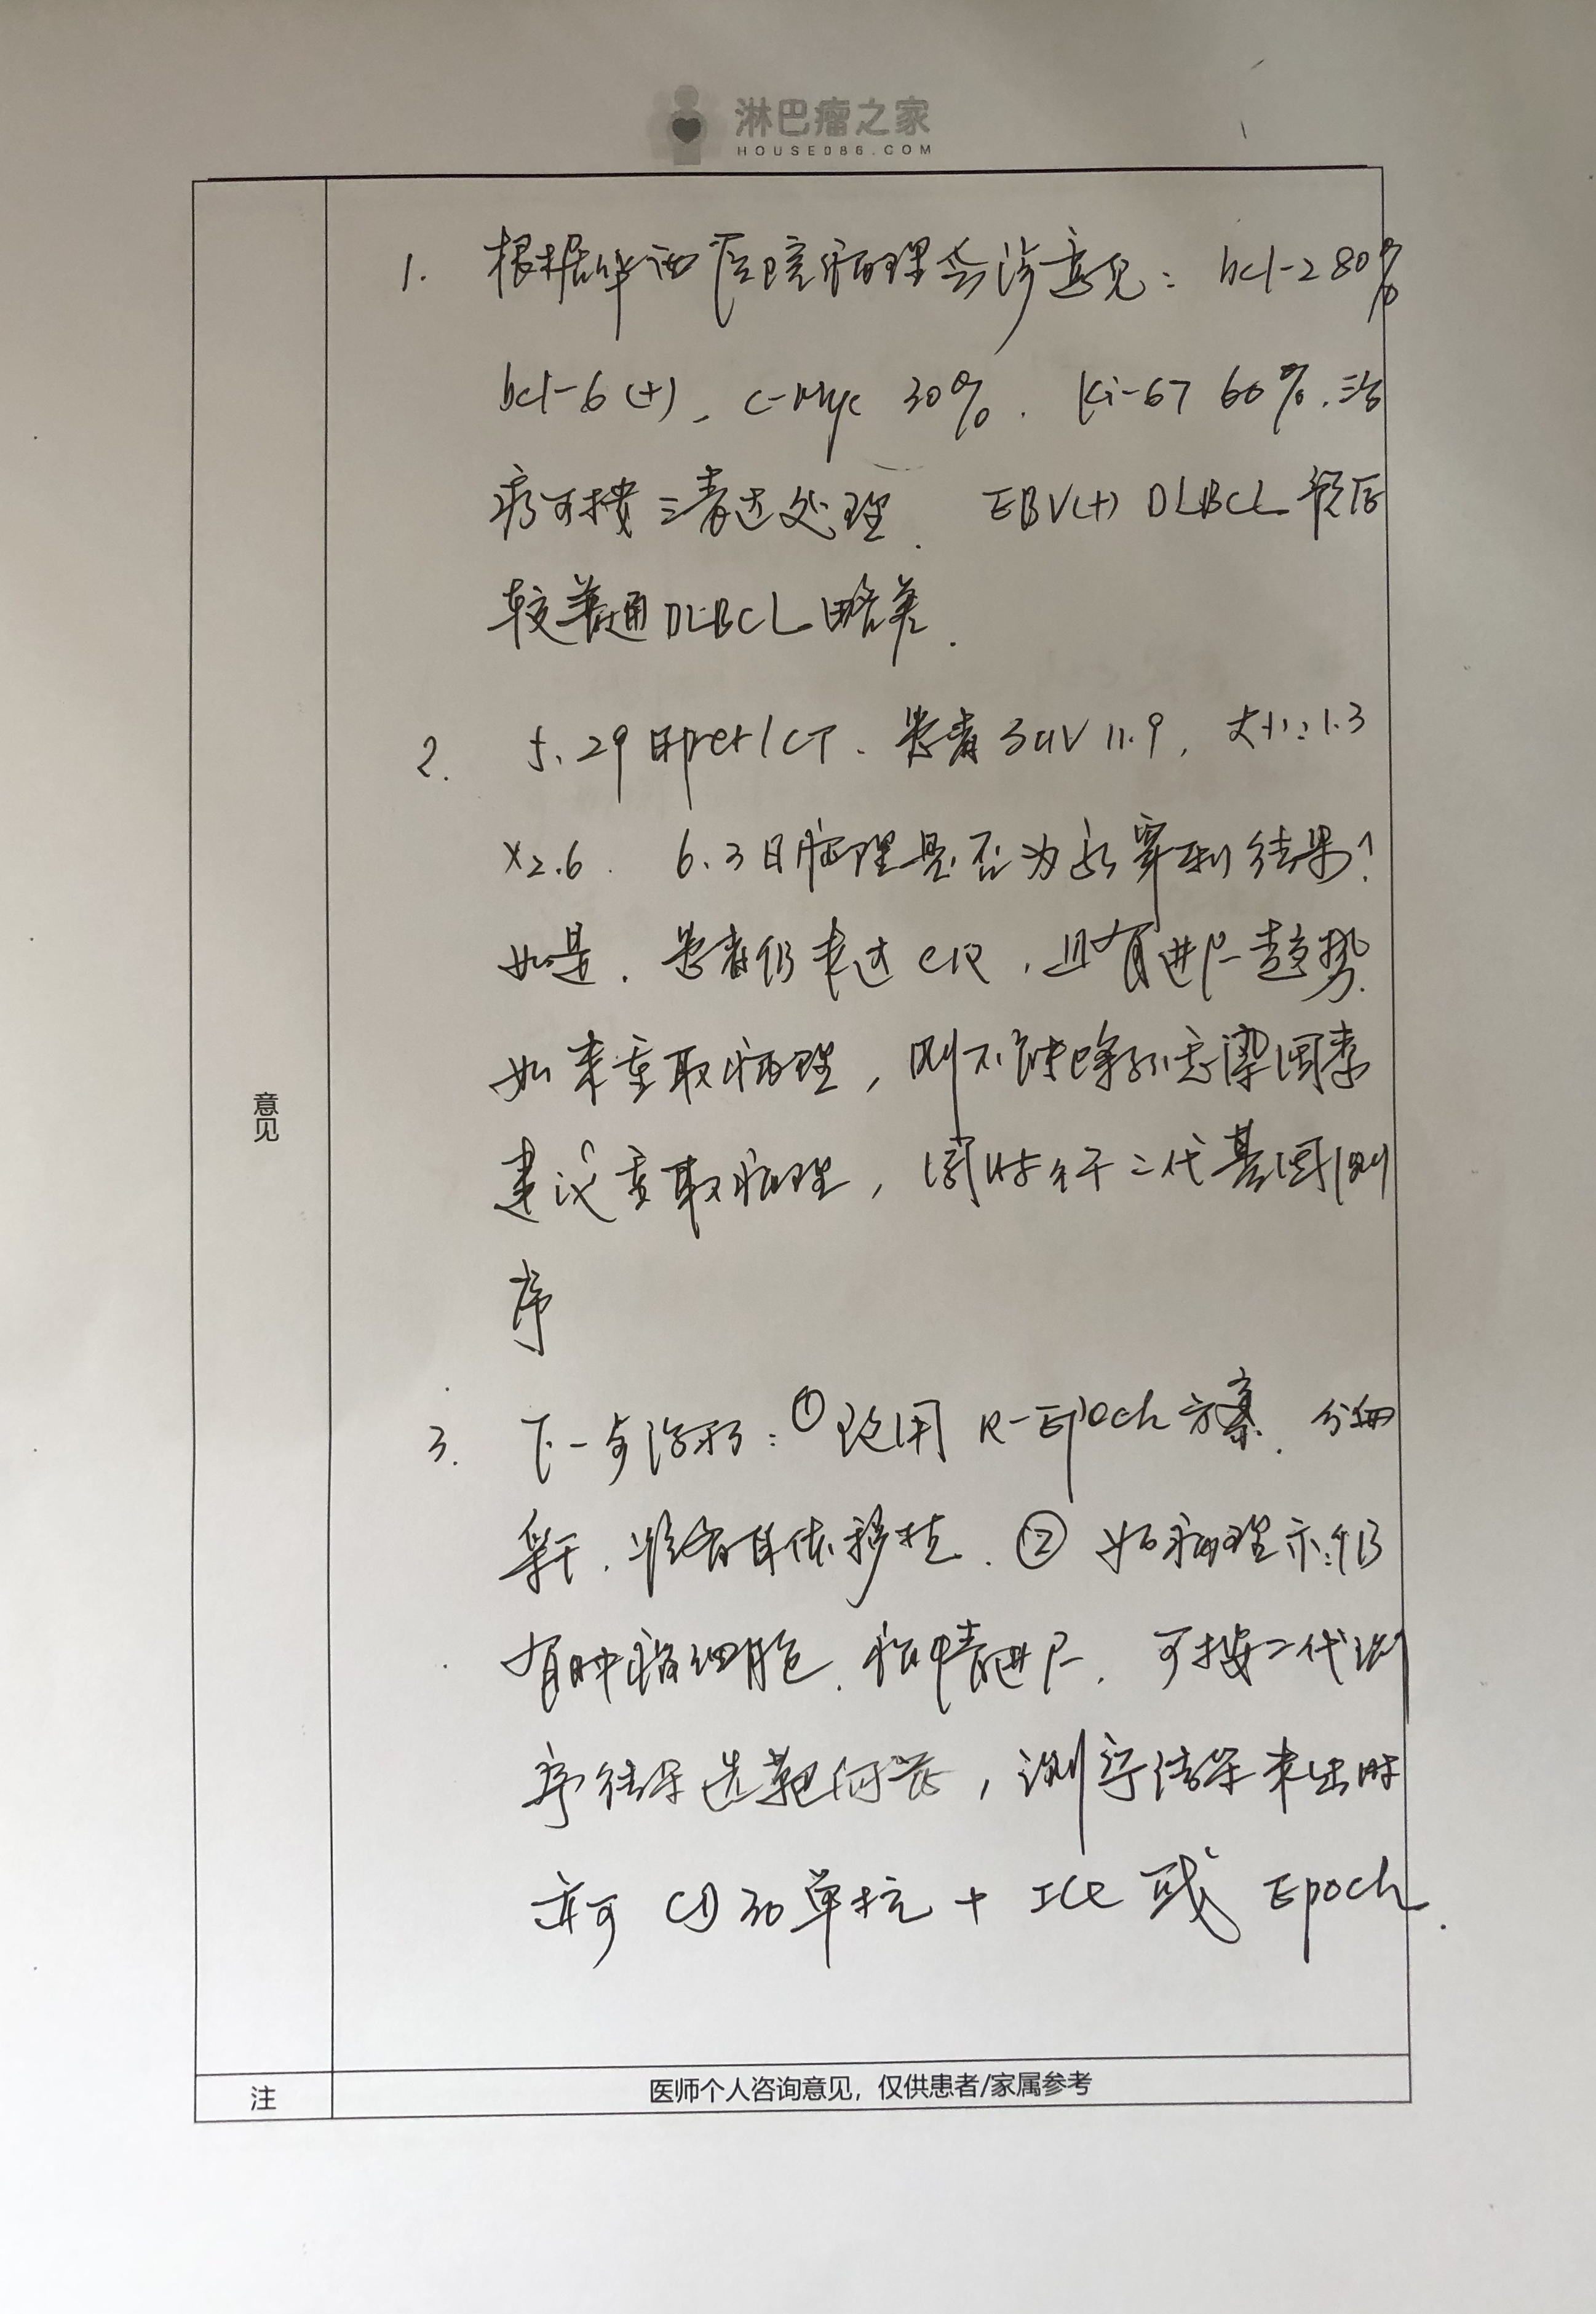 淋巴瘤之家
HOUSE086.COM
1. 根据华西医院病理会诊意见: bcl-2 80%
bcl-6 (+)、c-Myc 30%. Ki-67 60%. 治
疗可按三表达处理. EBV(+) DLBCL 预后
较普通DLBCL略差.
2. 5.29日pet/CT. 患者SUV 11.9, 大小:1.3
×2.6. 6.3日病理是否为穿刺结果?
如是. 患者仍未达CR, 且有进展趋势.
如未重取病理, 则不能除外感染因素
建议重取病理, 同时行二代基因测
序
意见
3. 下一步治疗: ① 改用 R-Epoch 方案.
采干. 准备自体移植. ② 如病理示仍
有肿瘤细胞. 病情进展. 可按二代测
序结果选靶向药, 测序结果未出时
亦可 CD30单抗 + ICE 或 Epoch.
注 医师个人咨询意见，仅供患者/家属参考